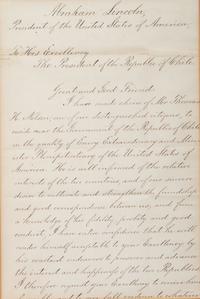 Abraham Lincoln,
President of the United States of America,
To His Excellency
The President of the Republic of Chile.
Great and Good Friend:
I have made choice of Mr. Thomas
H. Nelson, one of our distinguished citizens, to
reside near the Government of the Republic of Chile
in the quality of Envoy Extraordinary and Minis-
ter Plenipotentiary of the United States of
America. He is well informed of the relative
interests of the two countries, and of our sincere
desire to cultivate and strengthen the friendship
and good correspondence between us, and from
a knowledge of his fidelity, probity and good
conduct, I have entire confidence that he will
render himself acceptable to your Excellency by
his constant endeavors to preserve and advance
the interest and happiness of the two Republics.
I therefore request your Excellency to receive him